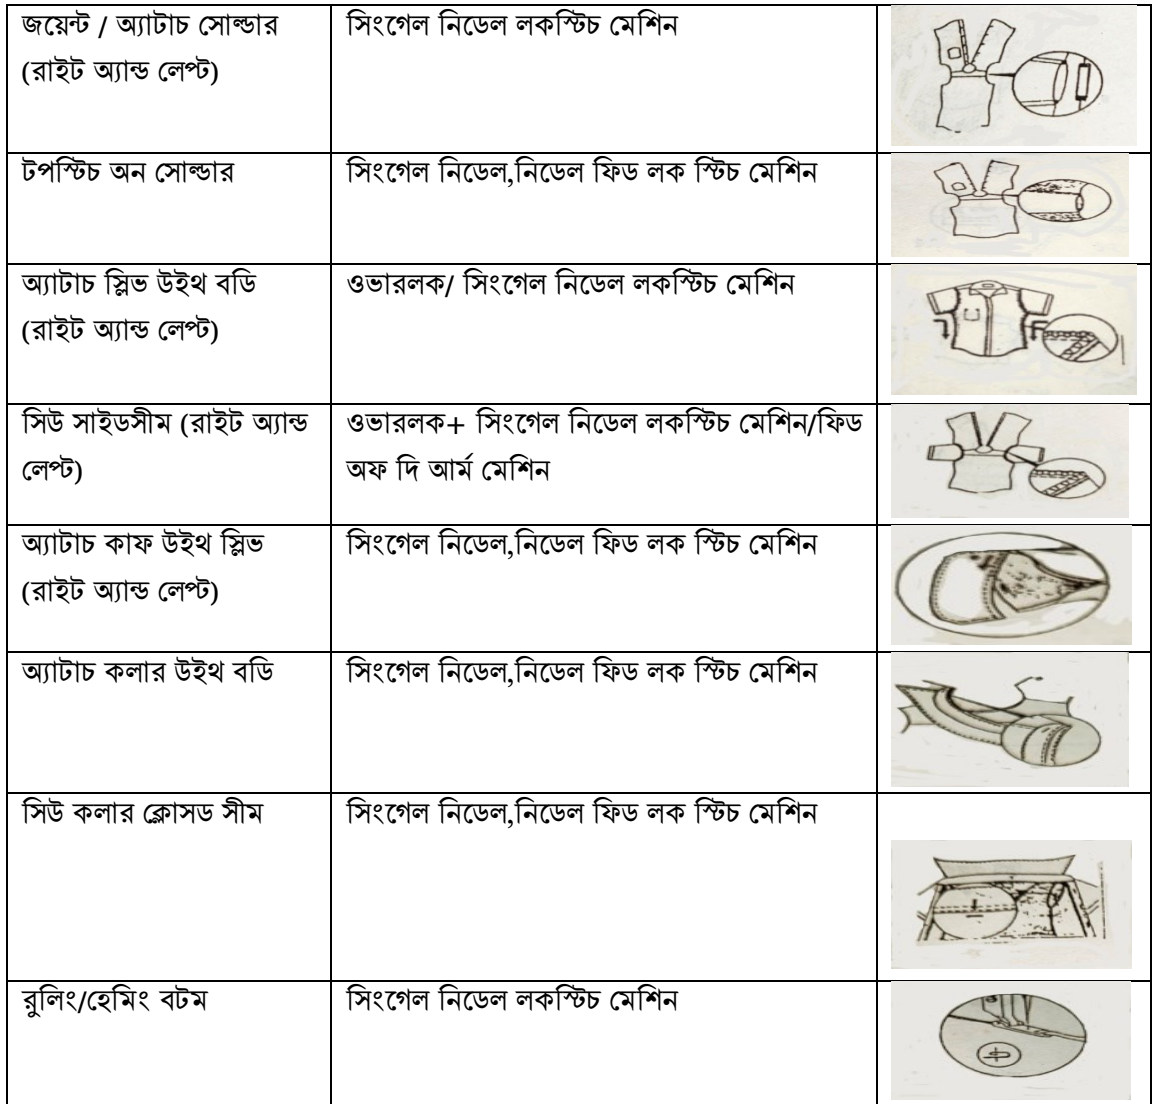 জয়েন্ট / অ্যাটাচ সোল্ডার
(রাইট অ্যান্ড লেপ্ট)
সিংগেল নিডেল লকস্টিচ মেশিন
টপস্টিচ অন সোল্ডার
সিংগেল নিডেল,নিডেল ফিড লক স্টিচ মেশিন
অ্যাটাচ স্লিভ উইথ বডি
(রাইট অ্যান্ড লেপ্ট)
ওভারলক/ সিংগেল নিডেল লকস্টিচ মেশিন
সিউ সাইডসীম (রাইট অ্যান্ড
লেপ্ট)
ওভারলক+ সিংগেল নিডেল লকস্টিচ মেশিন/ফিড
অফ দি আর্ম মেশিন
অ্যাটাচ কাফ উইথ স্লিভ
(রাইট অ্যান্ড লেপ্ট)
সিংগেল নিডেল,নিডেল ফিড লক স্টিচ মেশিন
অ্যাটাচ কলার উইথ বডি
সিংগেল নিডেল,নিডেল ফিড লক স্টিচ মেশিন
সিউ কলার ক্লোসড সীম
সিংগেল নিডেল,নিডেল ফিড লক স্টিচ মেশিন
রুলিং/হেমিং বটম
সিংগেল নিডেল লকস্টিচ মেশিন